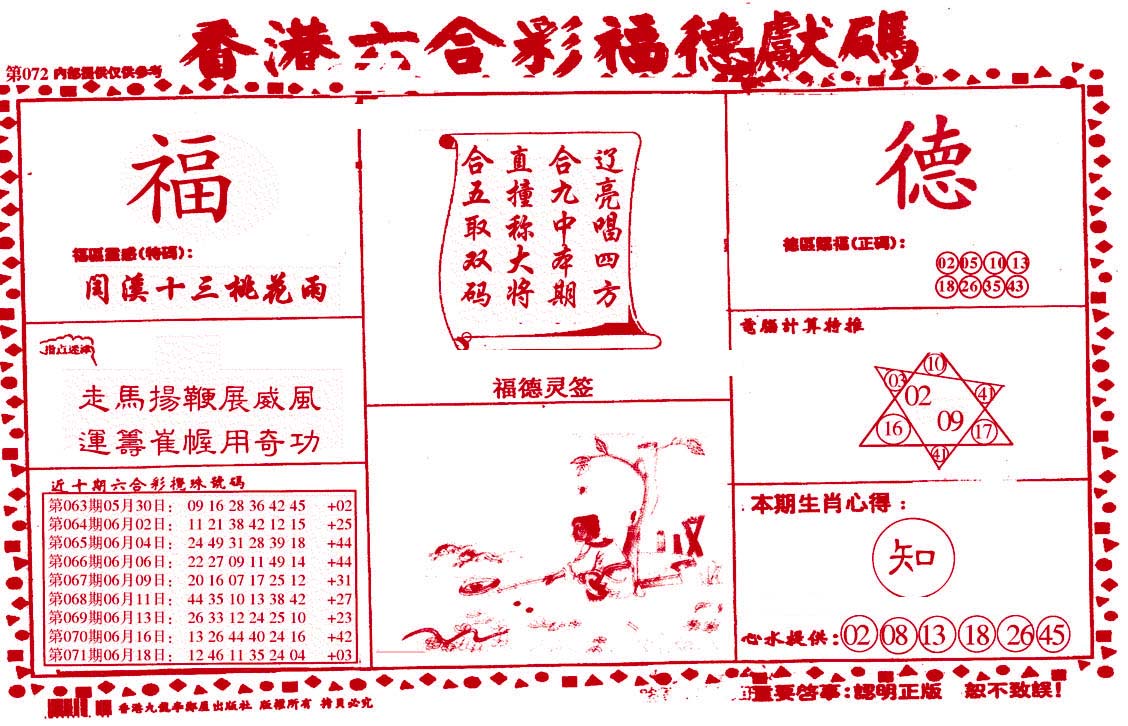 香港六合彩福德獻碼
第072 内部提供仅供參考
福
福區靈感(特碼):
閏溪十三桃花雨
指点迷津
走馬揚鞭展威風
運籌崔幄用奇功
近十期六合彩攪珠號碼
第063期05月30日: 09 16 28 36 42 45 +02
第064期06月02日: 11 21 38 42 12 15 +25
第065期06月04日: 24 49 31 28 39 18 +44
第066期06月06日: 22 27 09 11 49 14 +44
第067期06月09日: 20 16 07 17 25 12 +31
第068期06月11日: 44 35 10 13 38 42 +27
第069期06月13日: 26 33 12 24 25 10 +23
第070期06月16日: 13 26 44 40 24 16 +42
第071期06月18日: 12 46 11 35 24 04 +03
辽亮唱四方
合九中本期
直撞称大将
合五取双码
福德灵签
德
德區賜福(正碼):
02 05 10 13
18 26 35 43
電腦計算特推
10
03
02
41
16
09
17
41
本期生肖心得:
知
心水提供: 02 08 13 18 26 45
香港九龍 出版社 版權所有 拷貝必究
重要啓事:認明正版 恕不致誤!